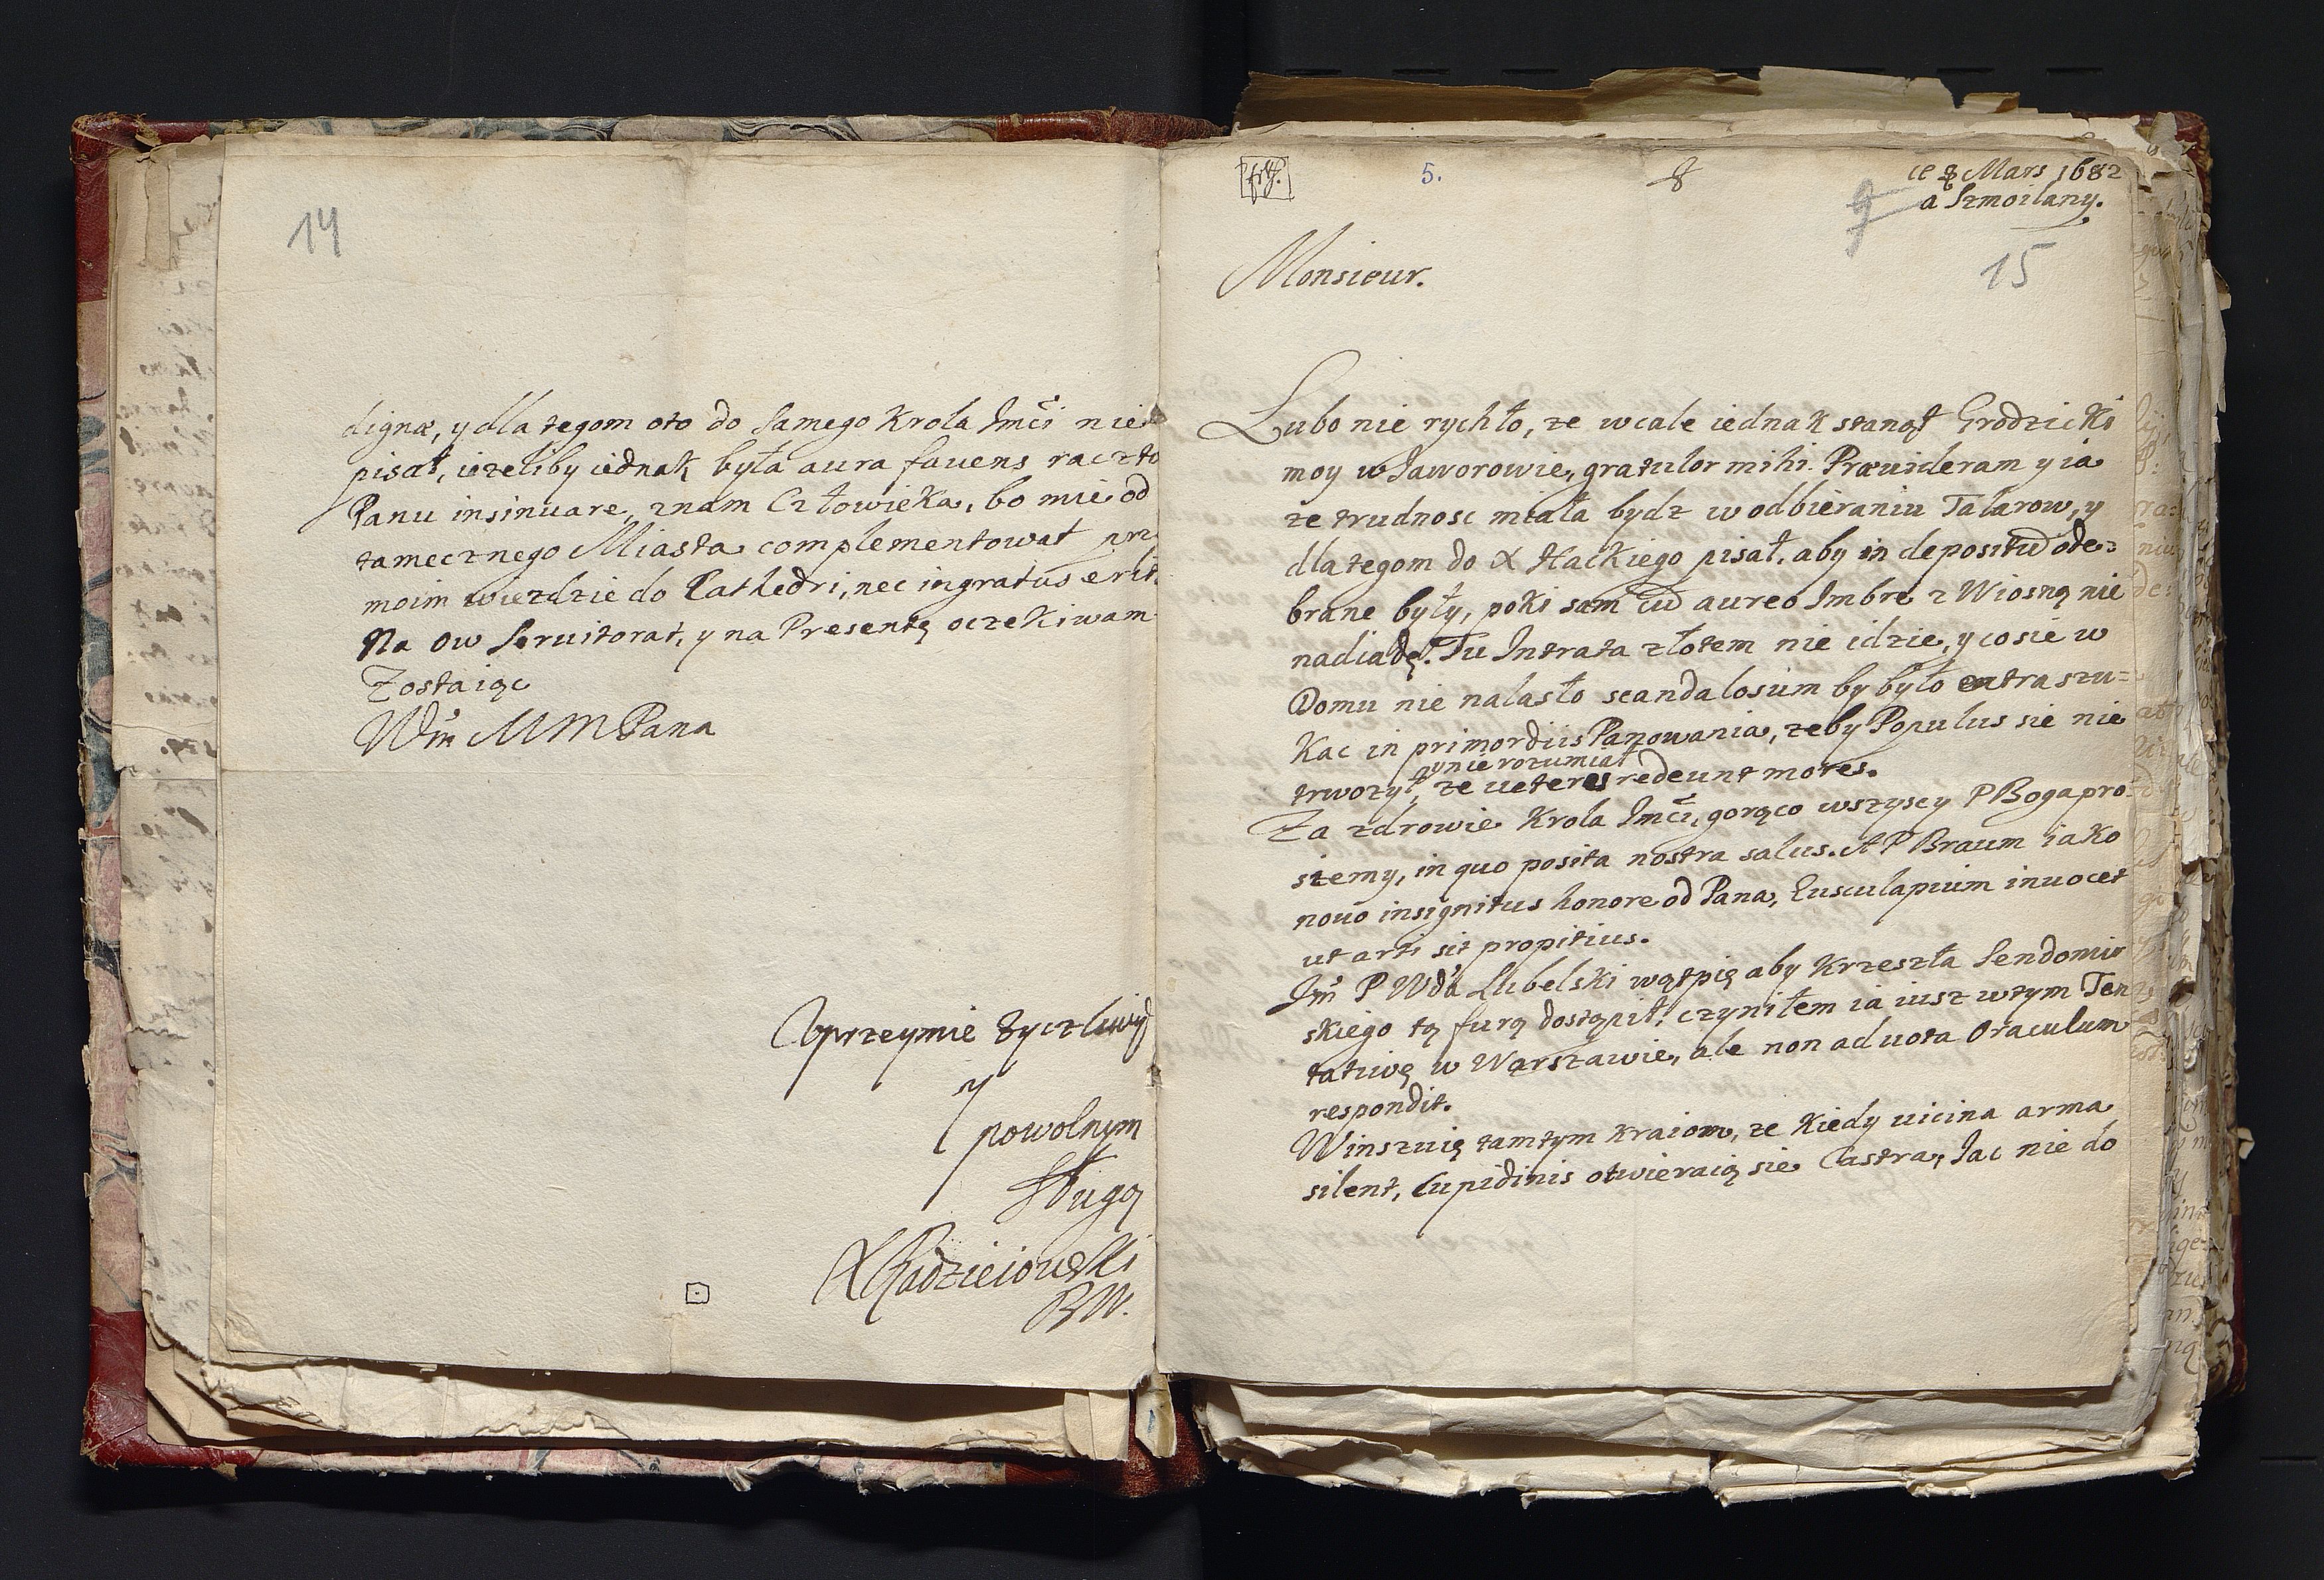 14
dignæ, y dla tegom oto do samego Krola Jmći nie
pisał, iezeliby iednak była aura fauens racz to
Panu insinuare, znam Człowieka, bo mie od
tamecznego Miasta complementował prz
moim wiezdzie do Cathedri, nec ingratus erit.
Na ow Seruitorat, y na Presentę oczekiwam
Zostaiąc
Wm MMPana
Uprzeymie zyczliwy
y
powolnym
Sługą
XRadzieiowski
BW.
5.
8
ce 8 Mars 1682
9
a Szmoilany.
15
Monsieur.
Lubo nie rychło, ze wcale iednak stanął Grodzicki
moy w Jaworowie, gratulor mihi. Præuideram y ia
ze trudnosc miała bydz w odbieraniu Talarow, y
dla tegom do X Hackiego pisał, aby in depositu ode=
brane były, poki sam cu aureo Imbre z Wiosną nie
nadiadę. Tu Intrata złotem nie idzie, y co sie w
Domu nie nalasło scandalosum by było extra szu=
kac in primordiis Panowania, zeby Populus sie nie
y nie rozumiał
trwozył, ze ueteres redeunt mores.
Za zdrowie Krola Jmći, gorąco wszyscy P Boga pro=
siemy, in quo posita nostra salus. A P Braum iako
nouo insignitus honore od Pana, Eusculapium inuocet
ut arti sit propitius.
Jm P Wda Lubelski wątpię aby Krzesła Sendomir
skiego tą furą dostąpił, czyniłem ia iusz w tym Ten
tatiwę w Warszawie, ale non ad uota Oraculum
respondit.
Winszuię tamtym kraiom, ze kiedy uicina arma
silent, Cupidinis otwieraią sie Castra, Jac nie do